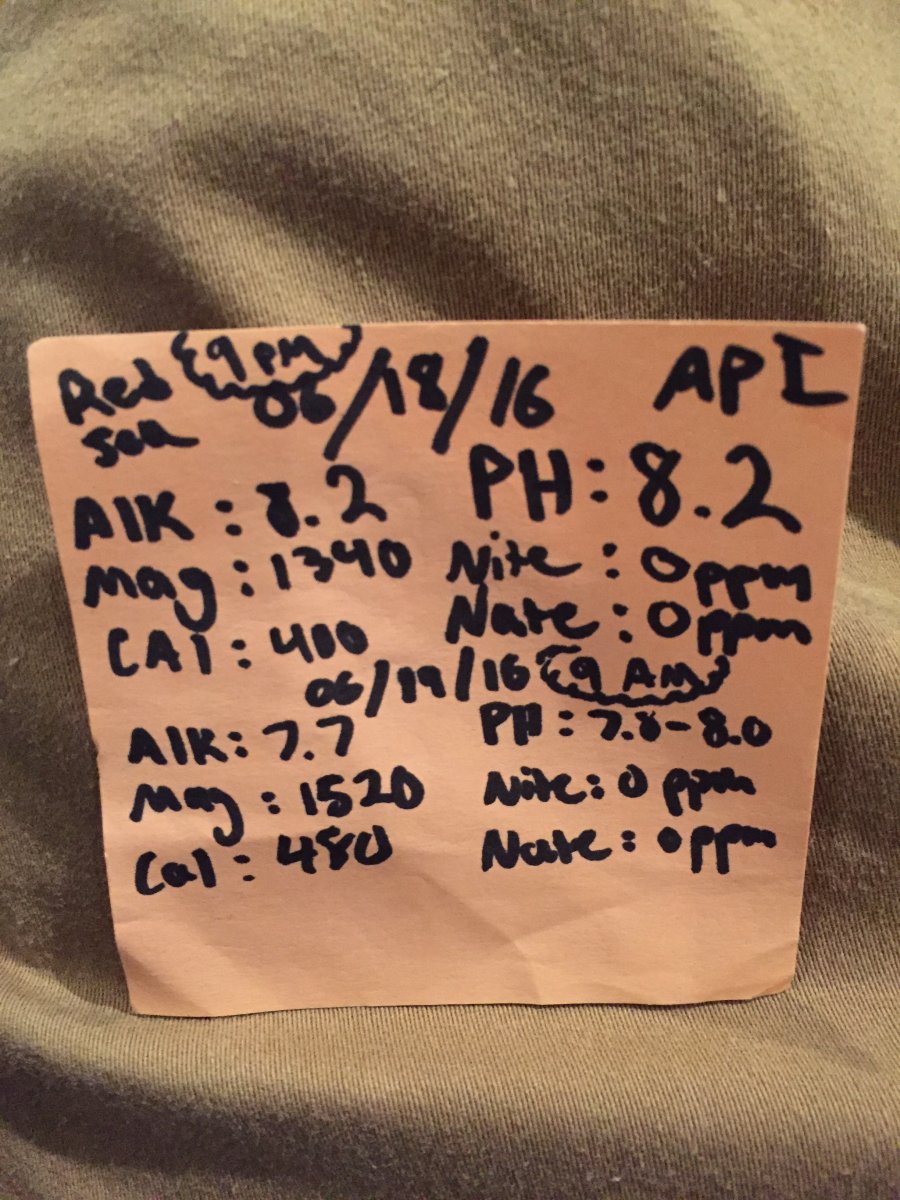 Red 9 PM 06/18/16 API
Sea
Alk : 8.2 PH : 8.2
Mag : 1340 Nite : 0 ppm
CAl : 400 Nate : 0 ppm
06/19/16 9 AM
Alk : 7.7 PH : 7.8-8.0
Mag : 1520 Nite : 0 ppm
Cal : 480 Nate : 0 ppm